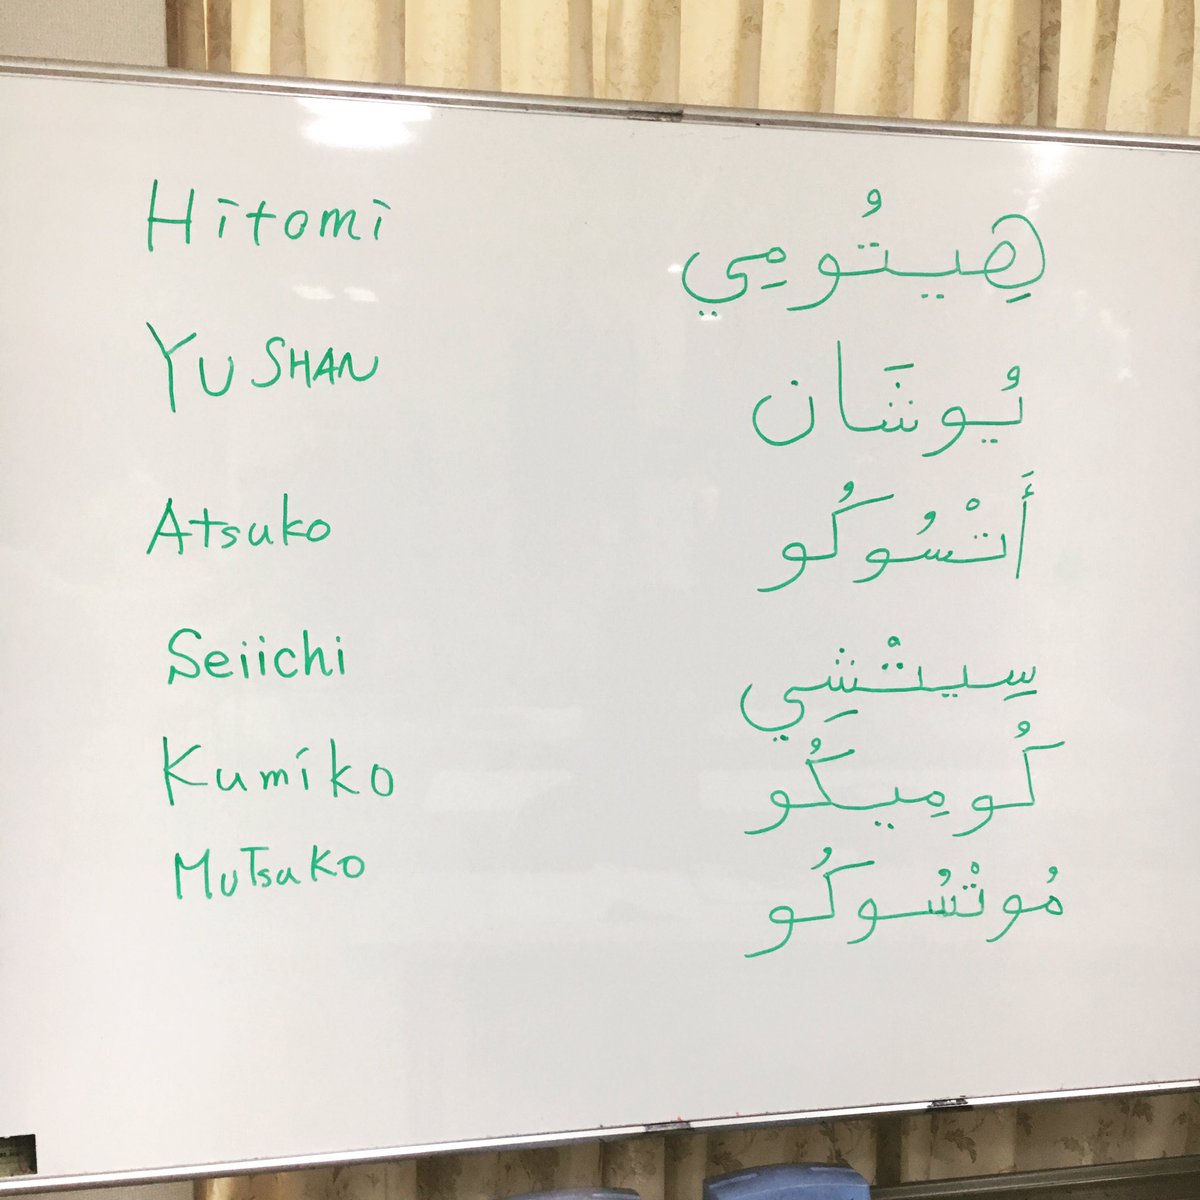 Hitomi هِيتُومِي
YU SHAN يُوشَان
Atsuko أَتْسُوكُو
Seiichi سِيتْشِي
Kumiko كُومِيكُو
MuTsuKo مُوتْسُوكُو